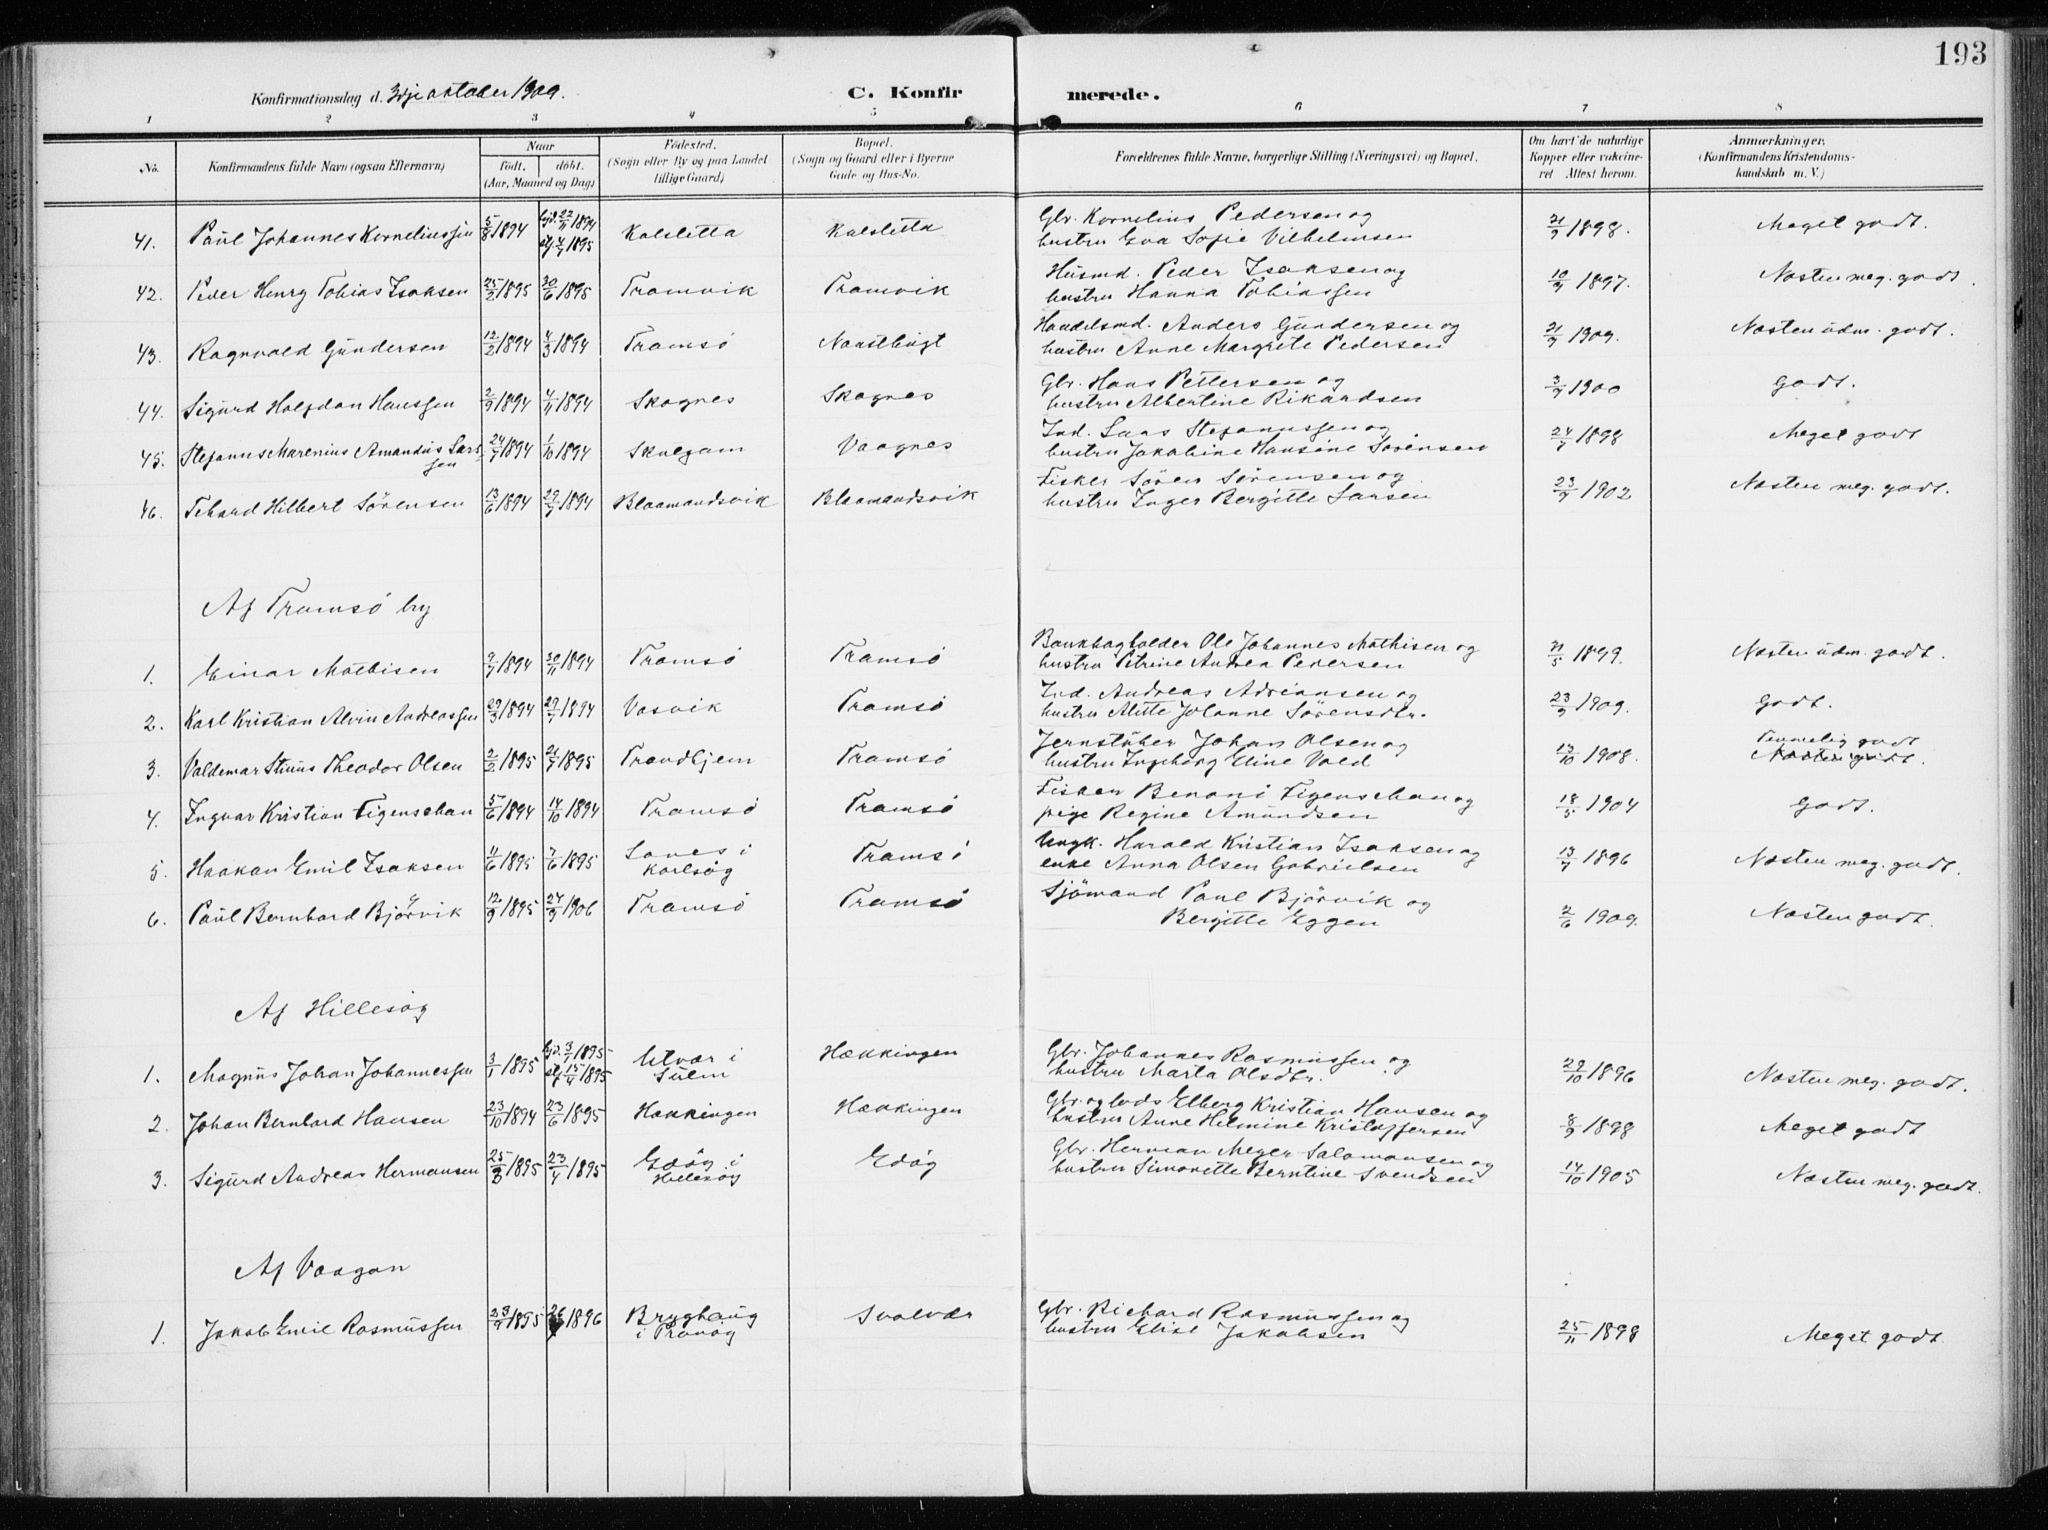 193
Konfirmationsdag d. 3dje oktober 1909.
C. Konfirmerede.
1 2 3 4 5 6 7 8
No. Konfirmandens fulde Navn (ogsaa Efternavn) Naar födt. döbt. (Aar, Maaned og Dag) Födested. (Sogn eller By og paa Landet tillige Gaard) Bopæl. (Sogn og Gaard eller i Byerne Gade og Hus-No. Forældrenes fulde Navne, borgerlige Stilling (Næringsvei) og Bopæl. Om havt de naturlige Kopper eller vakcineret Attest herom. Anmærkninger. (Konfirmandens Kristendomskundskab m. V.)
41. Paul Johannes Korneliussen 5/8 1894 hjd. 22/11 1894 Kalsletta Kalsletta Gbr. Kornelius Pedersen og 21/9 1898. Meget godt.
1895 hustru Eva Sofie Vilhelmsen
42. Peder Henry Tobias Isaksen 25/2 1895 30/6 1895 Tromvik Tromvik Husmd. Peder Isaksen og 10/9 1897. Næsten meg. godt.
hustru Hanna Tobiassen
43. Ragnvald Gundersen 12/2 1894 4/3 1894 Tromsö Naustbugt Handelsmd. Anders Gundersen og 21/9 1909. Næsten udm. godt.
hustru Anne Margrete Pedersen
44. Sigurd Halfdan Hanssen 2/9 1894 4/11 1894 Skognes Skognes Gbr. Hans Pettersen og 3/9 1900 Godt.
hustru Albertine Rikardsen
45. Stefanus Marenius Amandus Lars- 24/7 1894 1/10 1894 Skulgam Vaagnes Ind. Lars Stefanussen og 24/7 1898 Meget godt
sen hustru Jakobine Hansine Sörensen
46. Hilbert Sörensen 13/6 1894 29/7 1894 Blaamandsvik Blaamandsvik Fisker Sören Sörensen og 23/9 1902 Næsten meg. godt.
hustru Inger Bergitte Larsen
Af Tromsö by
1. Einar Mathisen 9/7 1894 30/11 1894 Tromsö Tromsö Bankbogholder Ole Johannes Mathisen og 31/5 1899. Næsten udm. godt.
hustru Petrine Andrea Pedersen
2. Karl Kristian Alvin Andreassen 29/3 1894 29/7 1894 Vasvik Tromsö Ind. Andreas Adriansen og 23/9 1909. Godt.
hustru Alette Johanne Sörensdtr.
3. Valdemar Theodor Olsen 2/2 1895 21/7 1895 Trondhjem Tromsö Jernstöber Johan Olsen og 13/10 1908. Temmelig godt
hustru Ingeborg Eline Vold Næsten godt.
4. Ingvar Kristian Figenschau 5/6 1894 14/10 1894 Tromsö Tromsö Fisker Benoni Figenschau og 18/5 1904 Godt.
pige Regine Amundsen
5. Haakon Emil Isaksen 4/6 1895 7/6 1895 i Tromsö Ungk. Harald Kristian Isaksen og 13/7 1896 Næsten meg. godt.
Karlsög enke Anna Olsen Gabrielsen
6. Paul Bernhard Björvik 12/9 1895 24/9 1906 Tromsö Tromsö Sjömand Paul Björvik og 2/6 1909. Næsten godt.
Bergitte Eggen
Af Hillesög
1. Magnus Johan Johannessen 3/1 1895 hjd. 3/1 1895 Utvær i Hækkingen Gbr. Johannes Rasmussen og 29/10 1896 Næsten meg. godt.
15/4 1895 Sulen hustru Marta Olsdtr.
2. Johan Bernhard Hansen 23/10 1894 23/6 1895 Hækkingen Hækkingen Gbr. og lods Elberg Kristian Hansen og 8/9 1898 Meget godt
hustru Anne Helmine Kristoffersen
3. Sigurd Andreas Hermansen 25/2 1895 23/4 1895 Edög i Edög Gbr. Herman Meyer Salomonsen og 14/10 1905 Næsten meg. godt.
Hillesög hustru Simonette Berntine Svendsen
Af Vaagan
1. Jakob Emil Rasmussen 23/9 1895 1896 Bryghaug Svolvær Gbr. Richard Rasmussen og 25/11 1898 Meget godt.
i hustru Elise Jakobsen